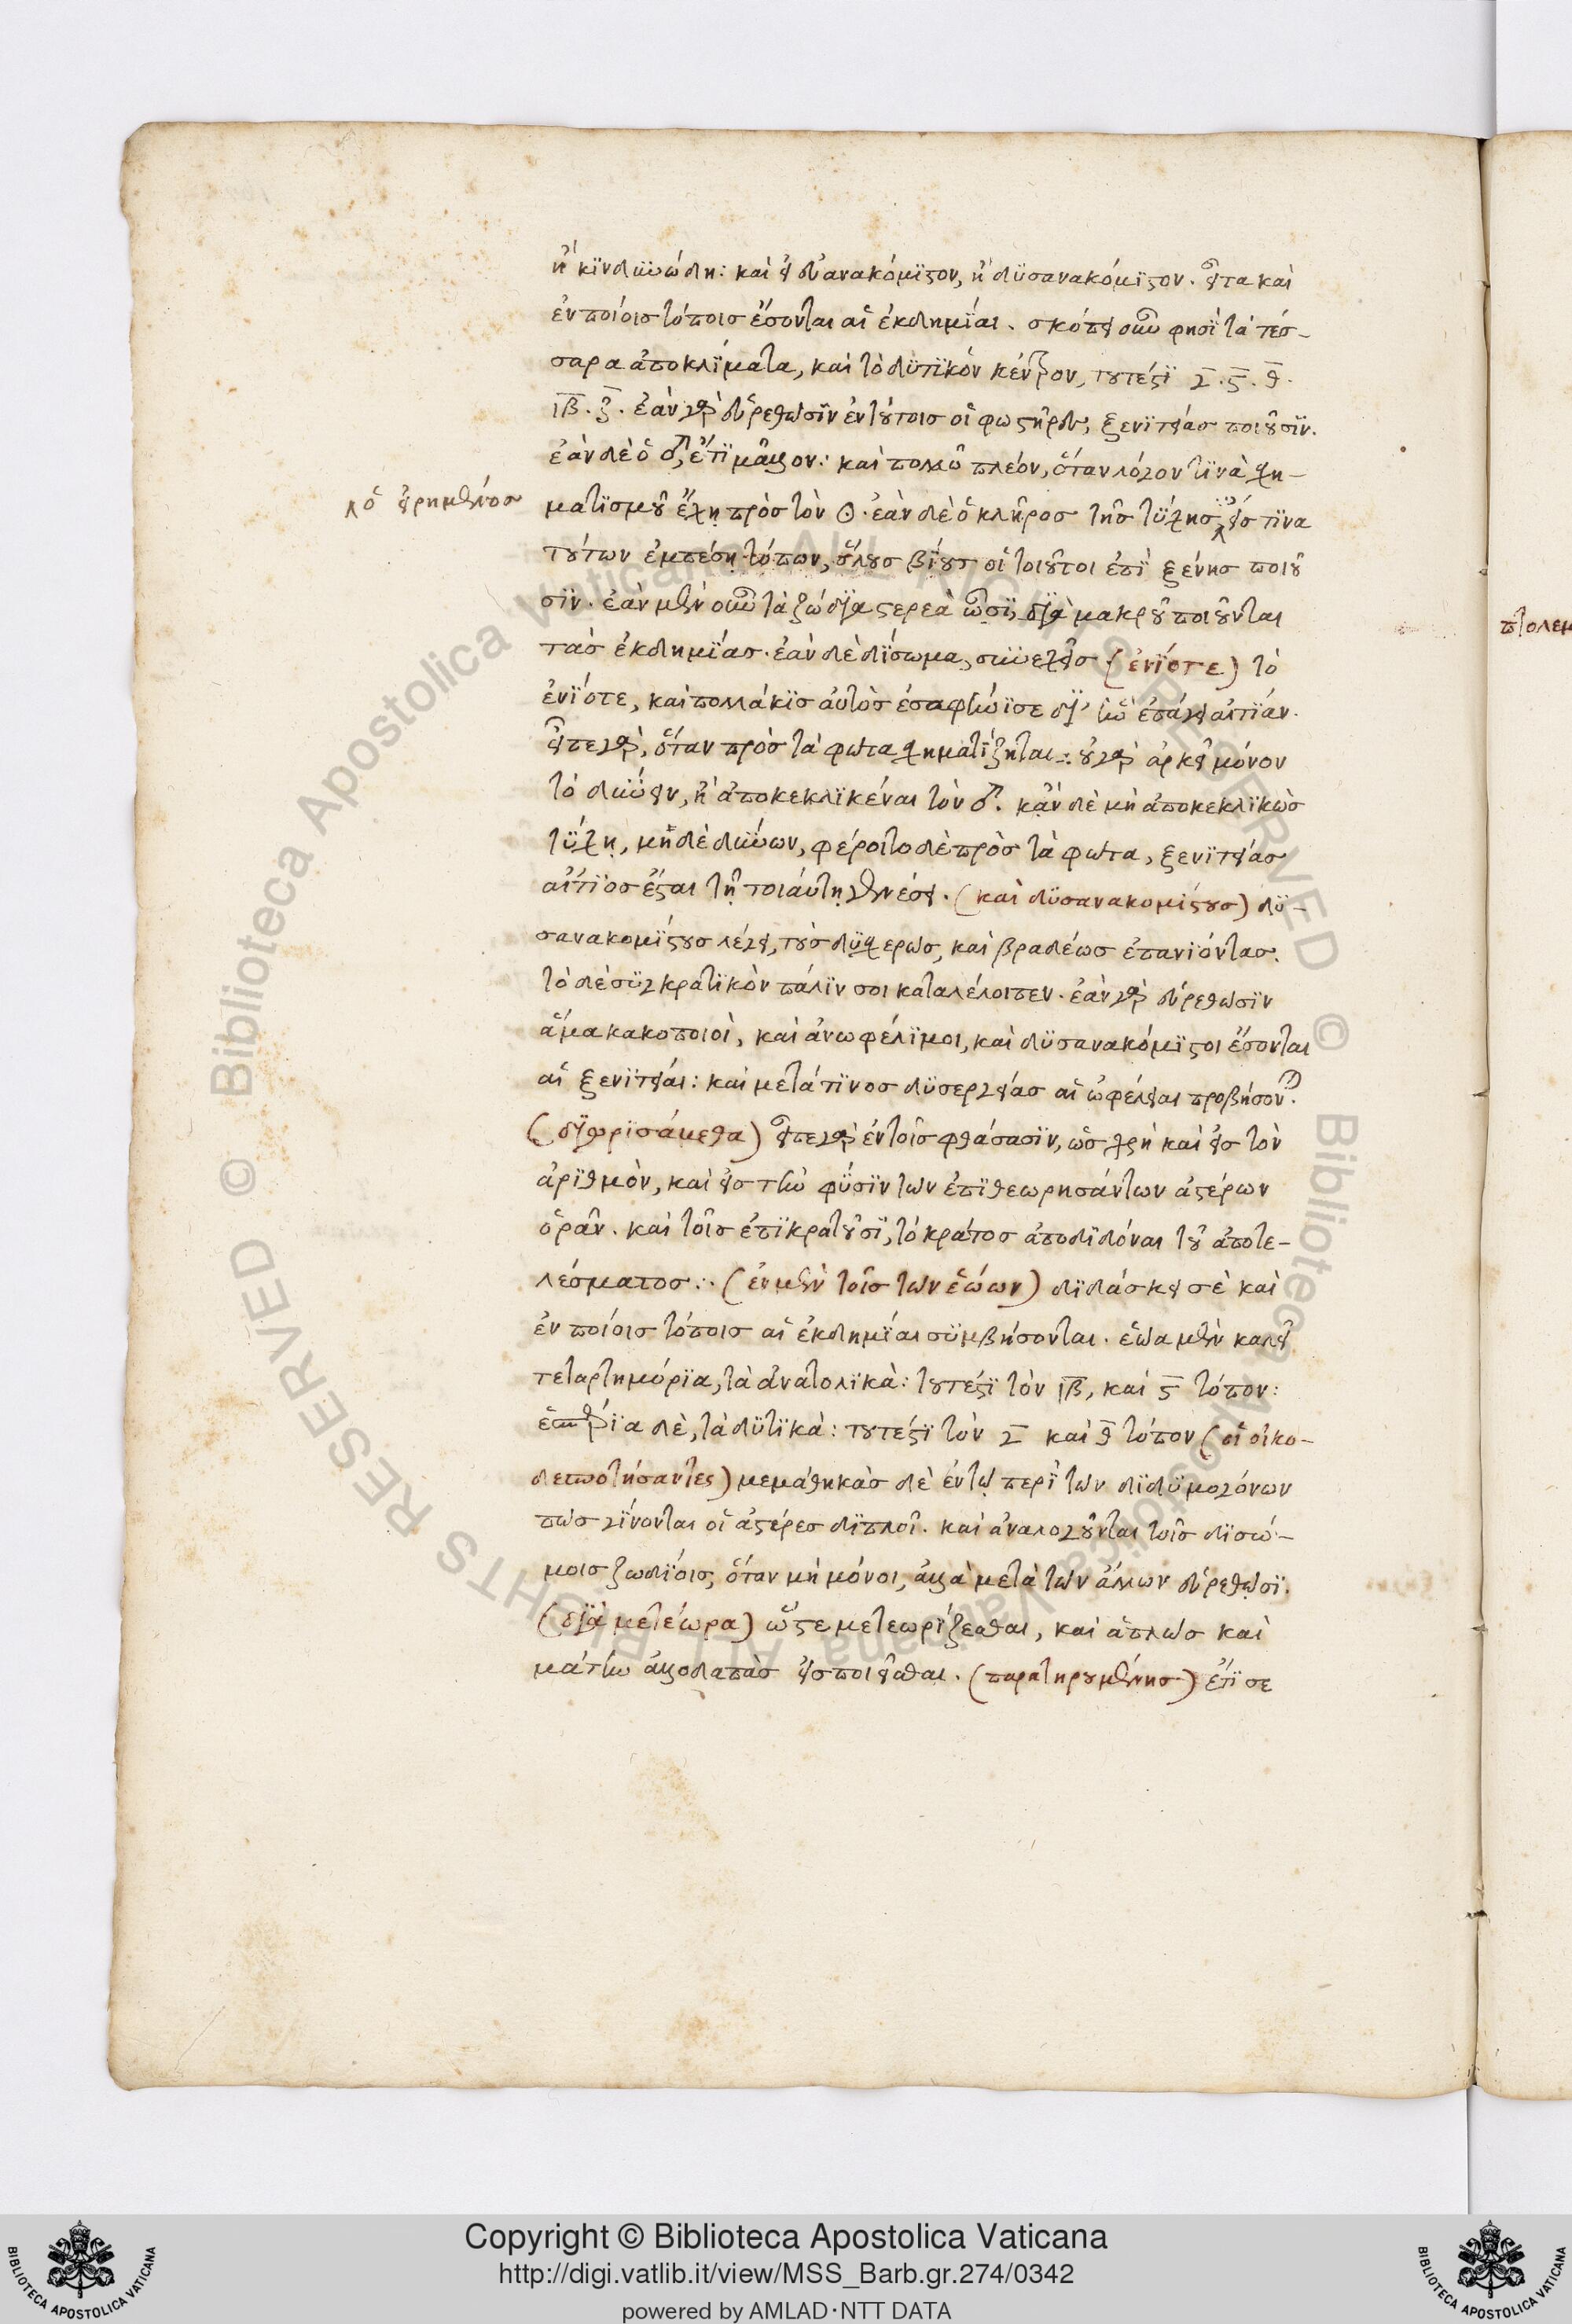 ἢ κινδυνώδη: καὶ εἰ εὐανακόμιστον, ἢ δυσανακόμιστον. εἶτα καὶ
ἐν ποίοις τόποις ἔσονται αἱ ἐκδημίαι. σκόπει οὖν φησὶ τὰ τέσ-
σαρα ἀποκλίματα, καὶ τὸ δυτικὸν κέντρον, τουτέστι γ̅. ϛ̅. θ̅.
ιβ̅. ζ̅. ἐὰν γὰρ εὑρεθῶσιν ἐν τούτοις οἱ φωστῆρες, ξενιτείας ποιοῦσιν.
ἐὰν δὲ ὁ ♂, ἔτι μᾶλλον: καὶ πολλῷ πλέον, ὅταν λόγον τινὰ σχη-
ματισμοῦ ἔχῃ πρὸς τὸν ☉. ἐὰν δὲ ὁ κλῆρος τῆς τύχης εἴς τινα
ὁ εἰρημένος
τούτων ἐμπέσῃ τόπων, ὅλους βίους οἱ τοιοῦτοι ἐπὶ ξένης ποιοῦ
σιν. ἐὰν μὲν οὖν τὰ ζώδια στερεὰ ὦσι, διὰ μακροῦ ποιοῦνται
τὰς ἐκδημίας. ἐὰν δὲ δίσωμα, συνεχεῖς (ἐνίοτε) τὸ
ἐνιότε, καὶ πολλάκις αὐτὸς ἐσαφήνισε δι' ἣν ἐπάγει αἰτίαν.
εἶπε γὰρ, ὅταν πρὸς τὰ φῶτα σχηματίζηται: οὐ γὰρ ἀρκεῖ μόνον
τὸ δύνειν, ἢ ἀποκεκλικέναι τὸν ♂. κἂν δὲ μὴ ἀποκεκλικὼς
τύχῃ, μηδὲ δύνων, φέροιτο δὲ πρὸς τὰ φῶτα, ξενιτείας
αἴτιος ἔσται τῇ τοιαύτῃ γενέσει. (καὶ δυσανακομίστους) δυ-
σανακομίστους λέγει, τοὺς δυσχερῶς, καὶ βραδέως ἐπανιόντας.
τὸ δὲ συγκρατικὸν πάλιν σοι καταλέλοιπεν. ἐὰν γὰρ εὑρεθῶσιν
ἅμα κακοποιοὶ, καὶ ἀνωφέλιμοι, καὶ δυσανακόμιστοι ἔσονται
αἱ ξενιτεῖαι: καὶ μετά τινος δυσεργείας αἱ ὠφέλειαι προβήσονται.
(διωρισάμεθα) εἶπε γὰρ ἐν τοῖς φθάσασιν, ὡς χρὴ καὶ εἰς τὸν
ἀριθμὸν, καὶ εἰς τὴν φύσιν τῶν ἐπιθεωρησάντων ἀστέρων
ὁρᾶν. καὶ τοῖς ἐπικρατοῦσι, τὸ κράτος ἀποδιδόναι τοῦ ἀποτε-
λέσματος: (ἐν μὲν τοῖς τῶν ἑῴων) διδάσκει σὲ καὶ
ἐν ποίοις τόποις αἱ ἐκδημίαι συμβήσονται. ἑῷα μὲν καλεῖ
τεταρτημόρια, τὰ ἀνατολικὰ: τουτέστι τὸν ιβ̅, καὶ ϛ̅ τόπον:
ἑσπέρια δὲ, τὰ δυτικὰ: τουτέστι τὸν γ̅ καὶ θ̅ τόπον (οἱ οἰκο-
δεσποτήσαντες) μεμάθηκας δὲ ἐν τῷ περὶ τῶν διδυμογόνων
πῶς γίνονται οἱ ἀστέρες διπλοῖ. καὶ ἀναλογοῦνται τοῖς δισώ-
μοις ζωδίοις, ὅταν μὴ μόνοι, ἀλλὰ μετὰ τῶν ἄλλων εὑρεθῶσι.
(διὰ μετέωρα) ὥστε μετεωρίζεσθαι, καὶ ἁπλῶς καὶ
μάτην ἀλλοδαπὰς εἰσποιεῖσθαι. (παρατηρουμένης) ἔτι σε
πτολεμ
Copyright © Biblioteca Apostolica Vaticana
http://digi.vatlib.it/view/MSS_Barb.gr.274/0342
powered by AMLAD·NTT DATA
BIBLIOTECA APOSTOLICA VATICANA
BIBLIOTECA APOSTOLICA VATICANA
© Biblioteca Apostolica Vaticana ALL RIGHTS RESERVED
© Biblioteca Apostolica Vaticana ALL RIGHTS RESERVED